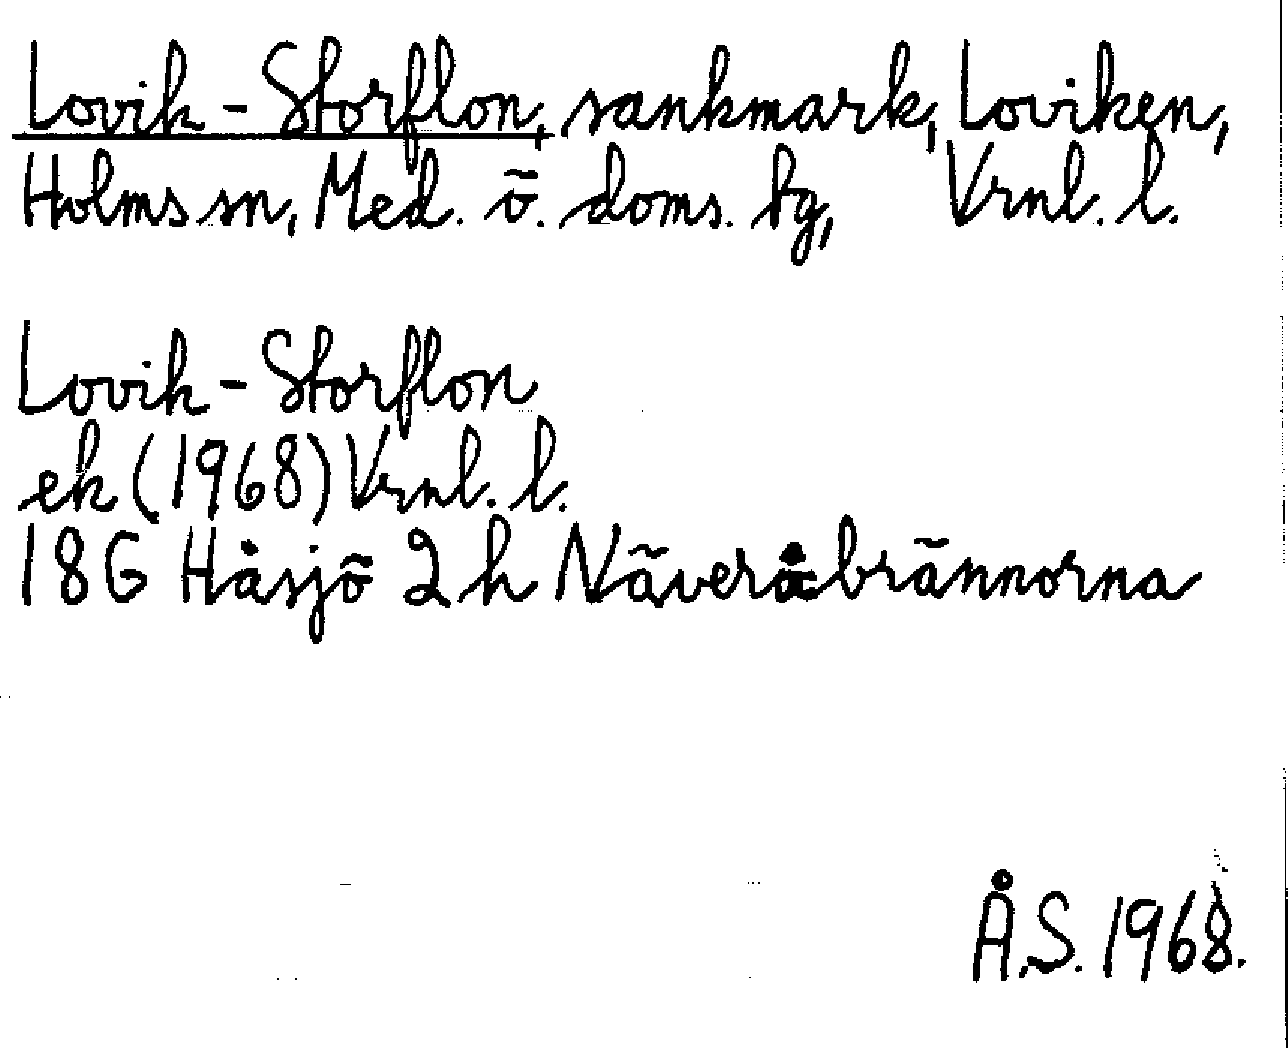 Lovik-Storflon, sankmark, Loviken,
Holms sn, Med. ö. doms. tg, Vrnl. l.
Lovik-Storflon
ek (1968) Vrnl. l.
18G Håsjö 2 h Näveråbrännorna
Å.S. 1968.